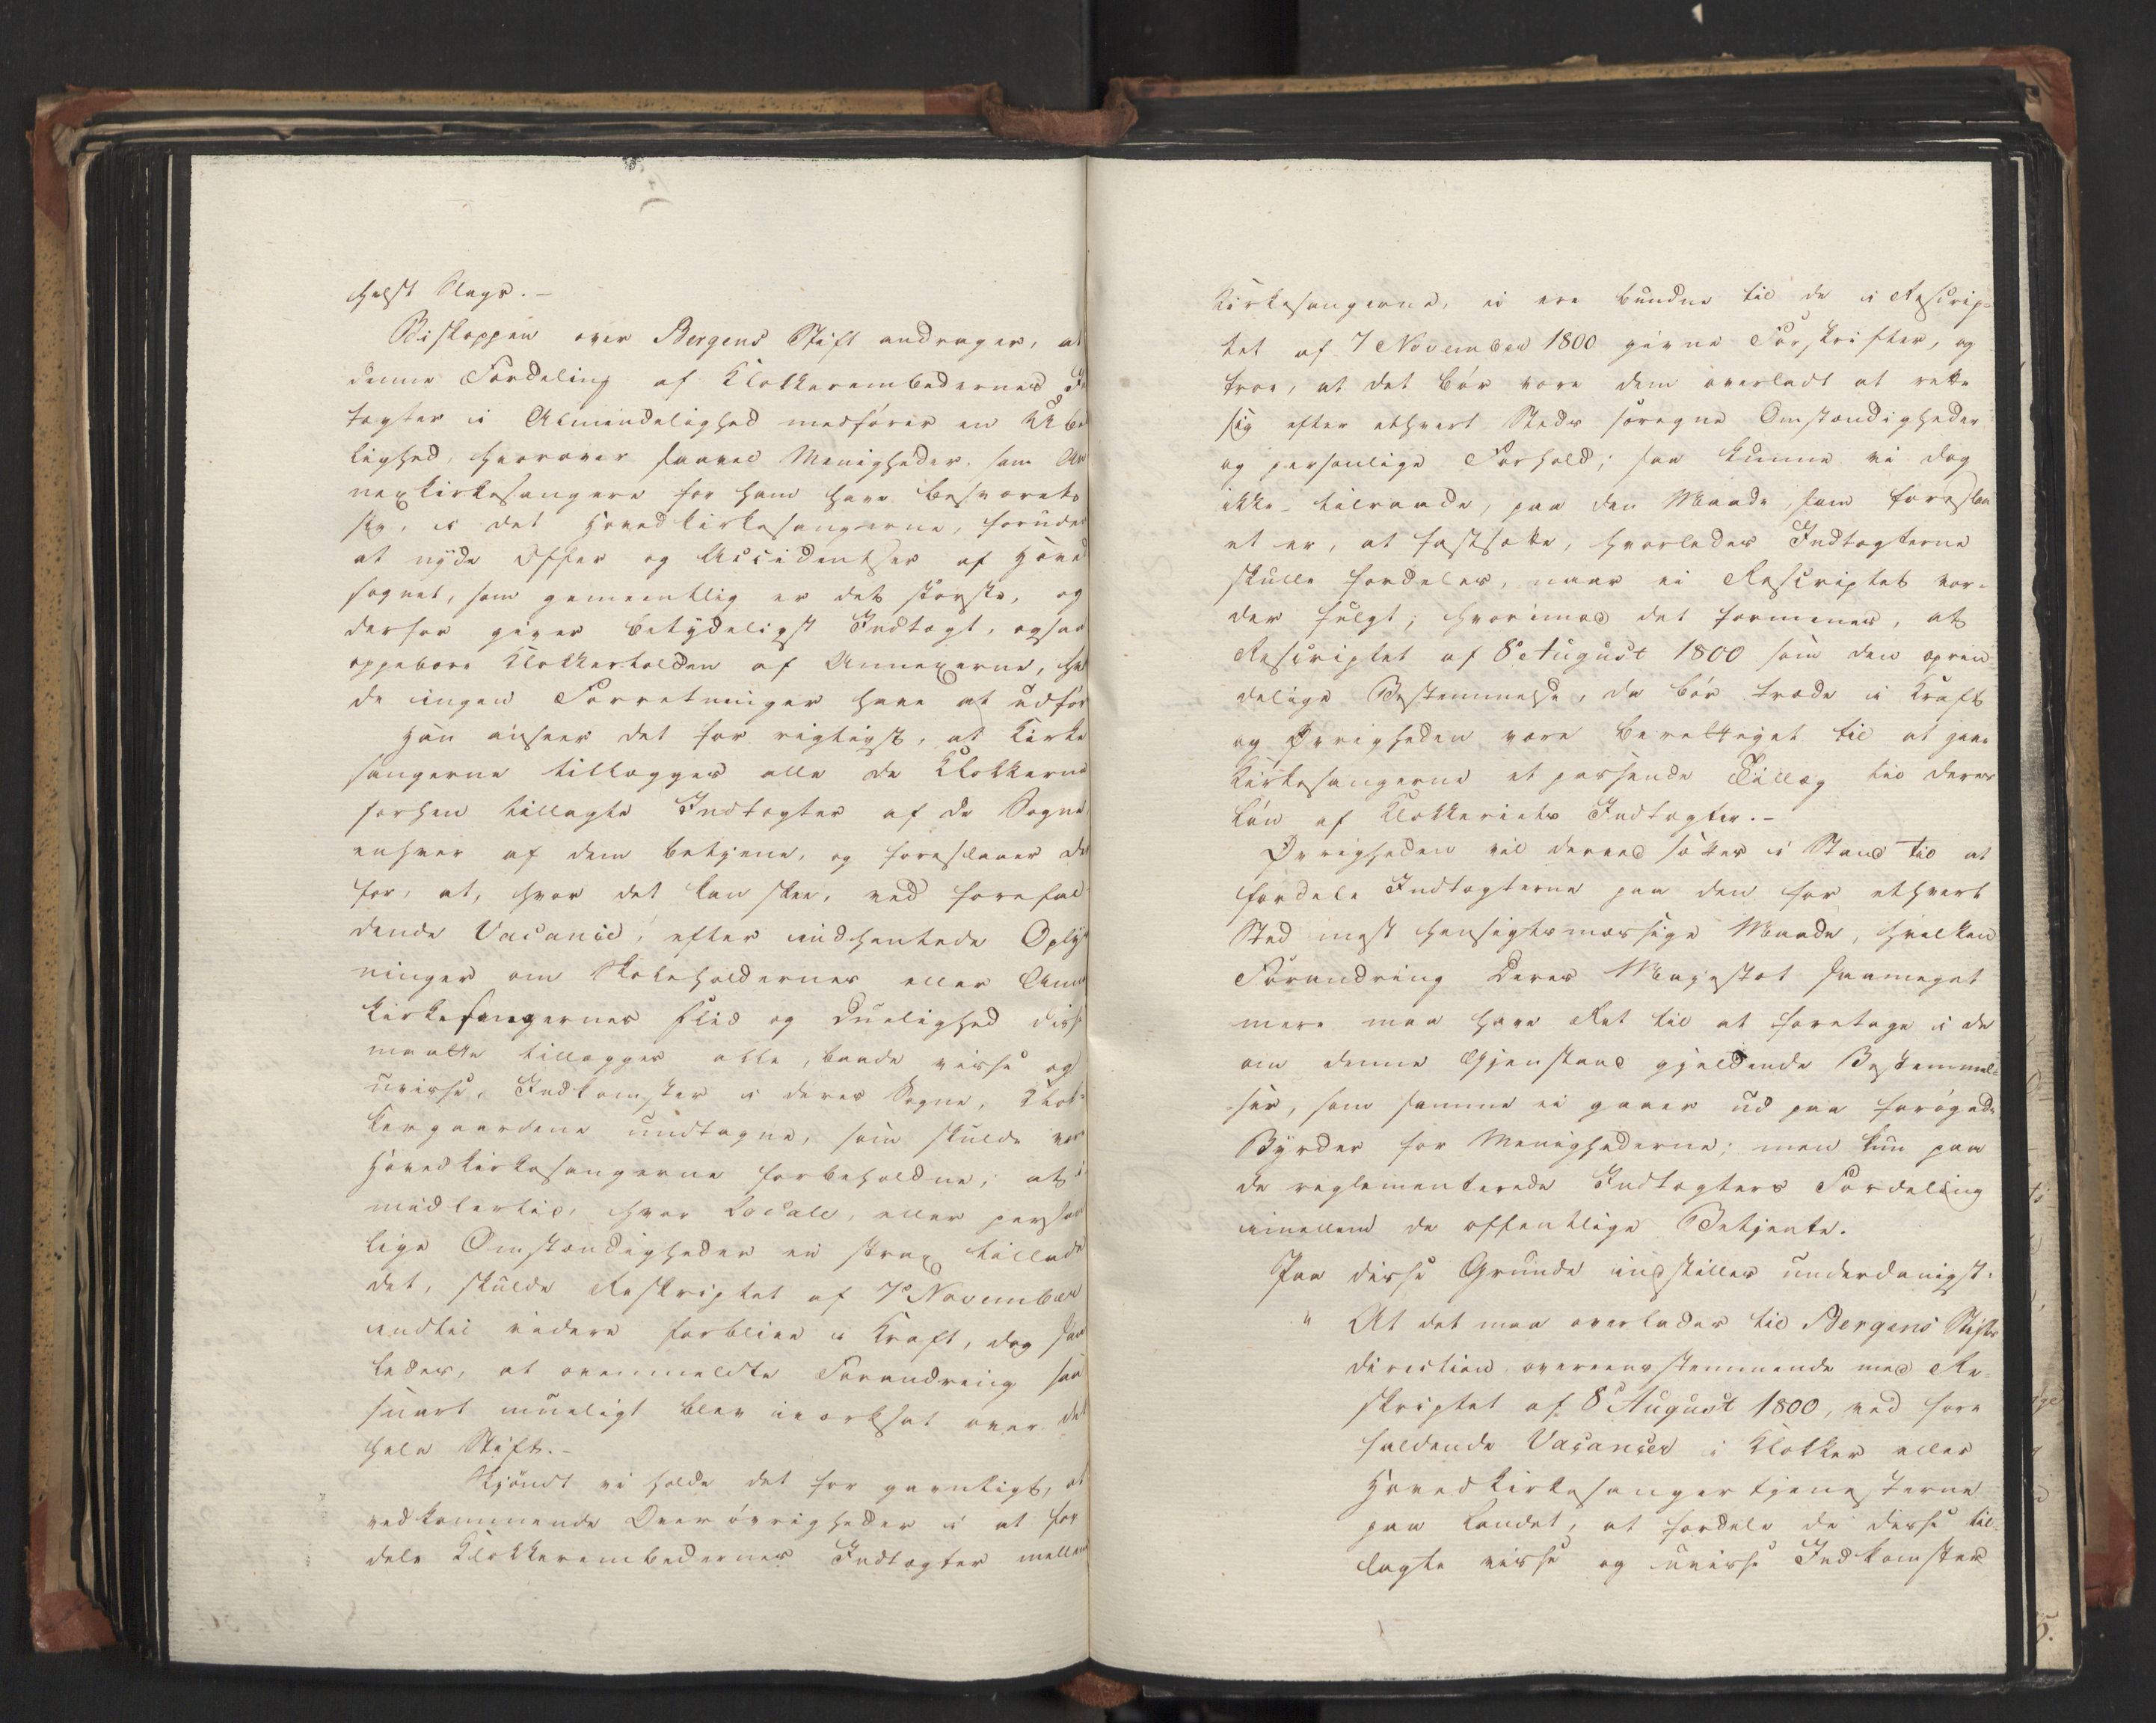 helst Slags.-
Biskoppen over Bergens Stift andrager, at
denne Fordeling af Klokkerembedernes In
tægter i Almindelighed medfører en Ube
lighed, hvorover saavel Menigheder, som An
nexkirkesangere for ham have besværet
sig, i det Hovedkirkesangerne, foruden
at nyde Offer og Accidentser af Hoved
sognet, som gemeenligg er det største, og
derfor giver betydeligst Indtægt, ogsaa
oppebære Klokkertolden af Annexerne, hvor
de ingen Forretninger have at udføre
Han ansees det for rigtigst, at Kirke
sangerne tillægges alle de Klokkerne
forhen tillagte Indtægter af de Sogne
enhver af dem betjene, og foreslaaer der
for, at, hvor det kan skee, ved forefal
dende Vacance, efter indhentede Oplys
ninger om Skoleholdernes eller Annex
kirkesangernes Flid og Duelighed disse
maatte tillægges alle, baade visse og
uvisse, Indkomster i deres Sogne, Klok-
kergaardene undtagne, som skulde være
Hovedkirkesangerne forbeholdne; at i
midlertid, hvor Locale, eller person
lige Omstændigheder ei strax tillade
det, skulde Reskriptet af 7de November
indtil videre forblive i Kraft, dog saa
ledes, at ovenmeldte Forandring saa
snart mueligt blev iværksat over det
hele Stift.-
Skjöndt vi holde det for gavnligt, at
vedkommende Overøvrigheder i at for
dele Klokkerembedernes Indtægter mellem
Kirkesangerne, ei ere bundne til de i Rescrip-
tet af 7 November 1800 givne Forskrifter, og
troe, at det bör være dem overladt at rette
sig efter ethvert Steds særegne Omstændigheder
og personlige Forhold; saa kunne vi dog
ikke tilraade, paa den Maade, som foreslaa
et er, at fastsætte, hvorledes Indtægterne
skulle fordeles, naar ei Rescriptet vor-
der fulgt; hvorimod det formenes, at
Rescriptet af 8de August 1800 som den opren
delige Bestemmelse, da bör træde i Kraft
og Øvrigheden være berettiget til at give
Kirkesangerne et passende Tillæg til deres
Lön af Klokkeriets Indtægter.-
Øvrigheden vil derved sættes i Stand til at
fordele Indtægterne paa den for ethvert
Sted mest hensigtsmæssige Maade, hvilken
Forandring Deres Majestæt saameget
mere maa have Ret til at foretage i de
om denne Gjenstand gjældende Bestemmel-
ser, som samme ei gaaer ud paa forögede
Byrder for Menighederne; men kun paa
de reglementerede Indtægters Fordeling
imellem de offentlige Betjente.
Paa disse Grunde indstilles underdanigst:
" At det maa overlades til Bergens Stifts
direction overeensstemmende med Re-
skriptet af 8de August 1800, ved fore
faldende Vacancer i Klokker eller
Hovedkirkesangertjenesterne
paa Landet, at fordele de disse til-
lagte visse og uvisse Indkomster